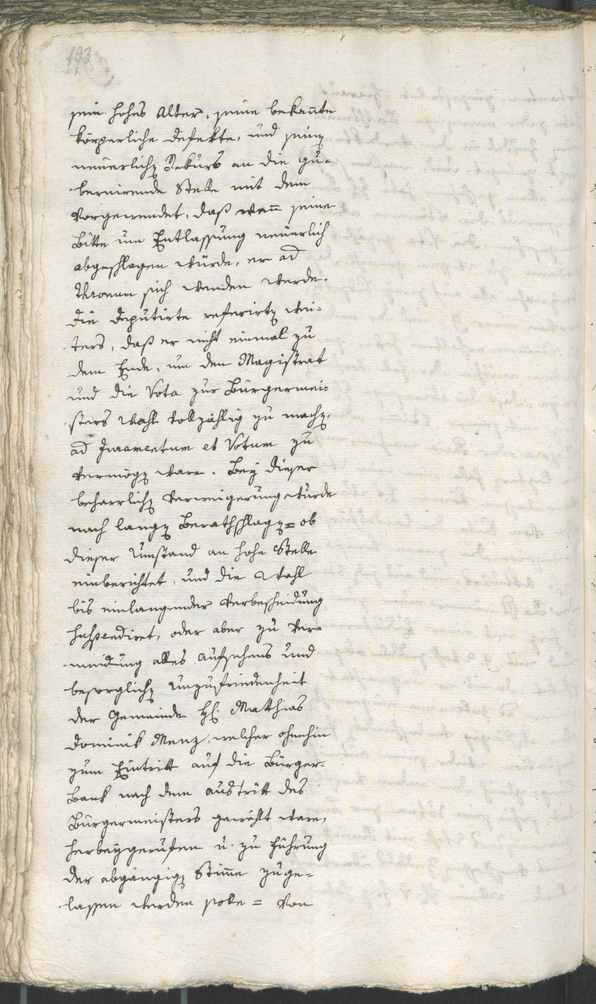 193
sein hohes Alter, seine bekañte
körperliche Defekte, und seinen
neuerlichen Rekurs an die gu-
bernirende Stelle mit dem
Vorgewendet, daß weñ seine
Bitte um Entlassung neuerlich
abgeschlagen würde, er ad
Thronum sich wenden werde.
Die Deputirte referirten wei-
ters, daß er nicht einmal zu
dem Ende, um den Magistrat
und die Vota zur Bürgermei-
sters Wahl vollzählig zu machen,
ad Juramentum et Votum zu
vermögen ware. Bey dieser
beharrlichen Verweigerung wurde
nach langen Berathschlagen = ob
dieser Umstand an hohe Stelle
einberichtet, und die Wahl
bis einlangender Verbescheidung
suspendiret, oder aber zu Ver-
meidung alles Aufsehens und
besorglichen Unzufriedenheit
der Gemeinde H: Mathias
Dominik Manz, welcher ohnehin
zum Eintritt auf die Bürger-
Bank nach dem Austritt des
Bürgermeisters gewählt ware,
herbeygerufen u. zu Führung
der abgängigen Stime zuge-
lassen werden solle = von